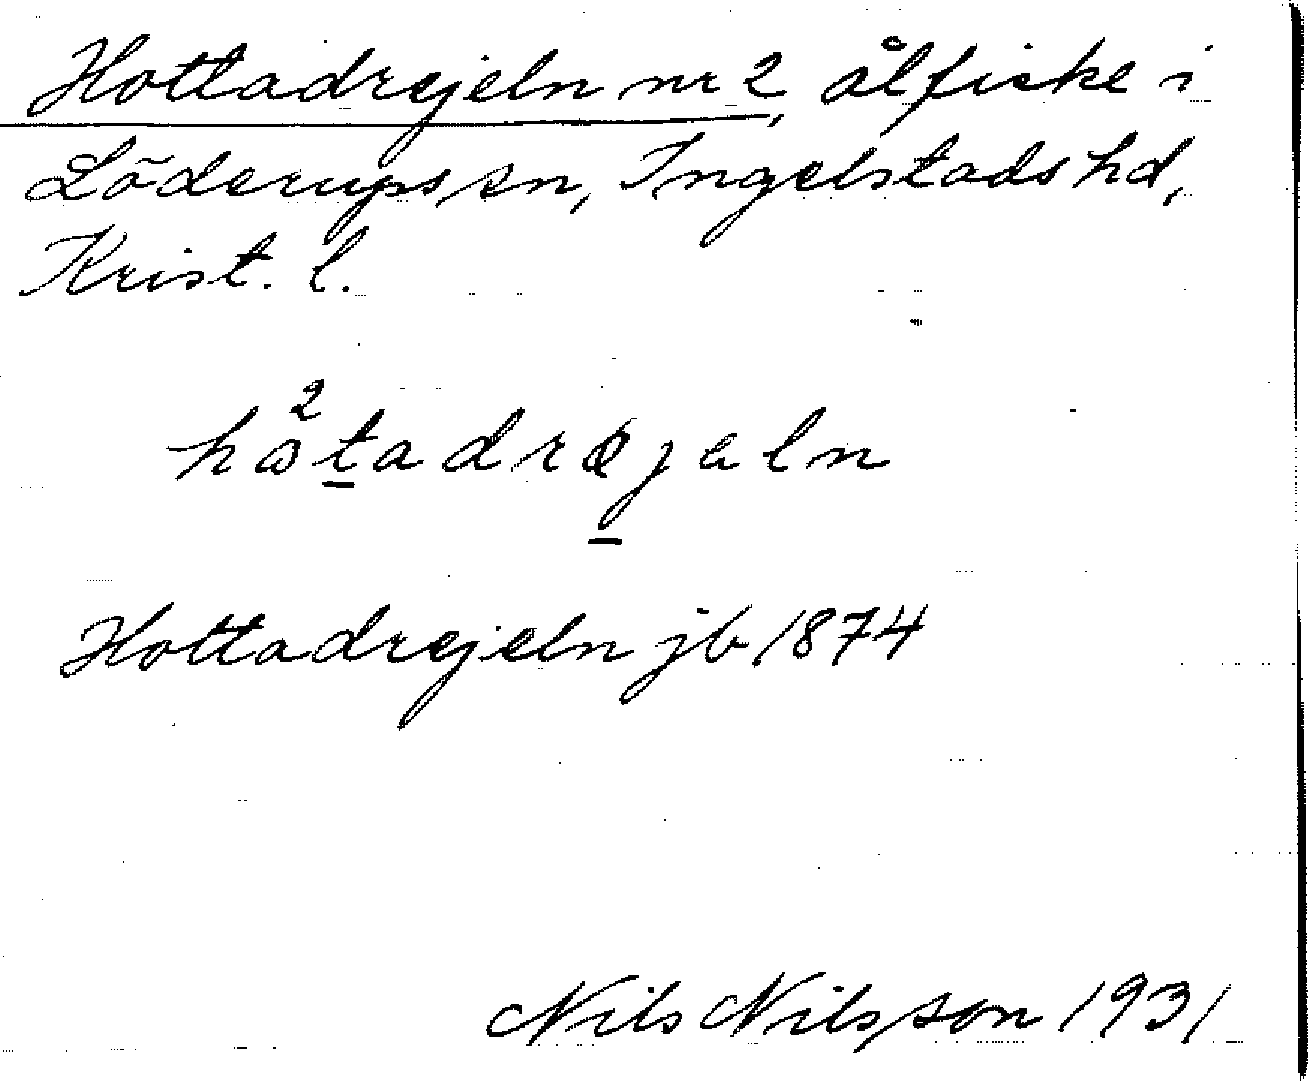 Hottadrejeln nr 2, ålfiske i
Löderups sn, Ingelstads hd,
Krist. l.
2
håtadræjaln
Hottadrejeln jb 1874
Nils Nilsson 1931